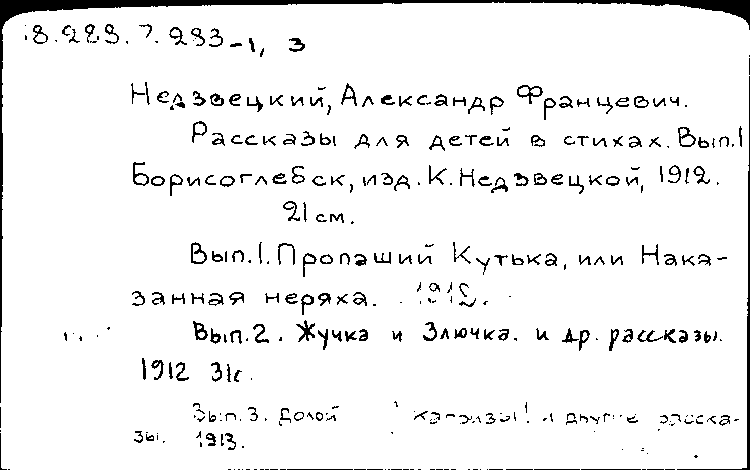 18.283.7.283-1, 3
Недзвецкий, Александр Францевич.
Рассказы для детей в стихах. Вып.1
Борисоглебск, изд. К. Недзвецкой, 1912.
21 см.
Вып.1. Пропащий Кутька, или Нака-
занная неряха. 1912.
Вып.2. Жучка и Злючка. и др. рассказы.
1912 31с.
Вып.3. Долой капризы! и другие расска-
зы. 1913.